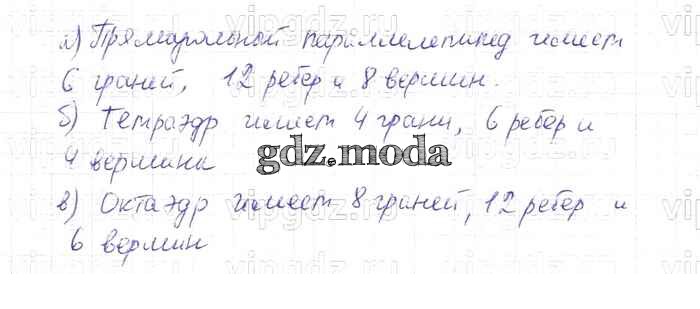 а) Прямоугольный параллелепипед имеет
6 граней, 12 ребер и 8 вершин.
б) Тетраэдр имеет 4 грани, 6 ребер и
4 вершины
gdz.moda
в) Октаэдр имеет 8 граней, 12 ребер и
6 вершин